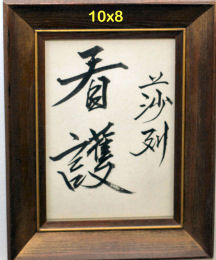 10x8
看護
莎列